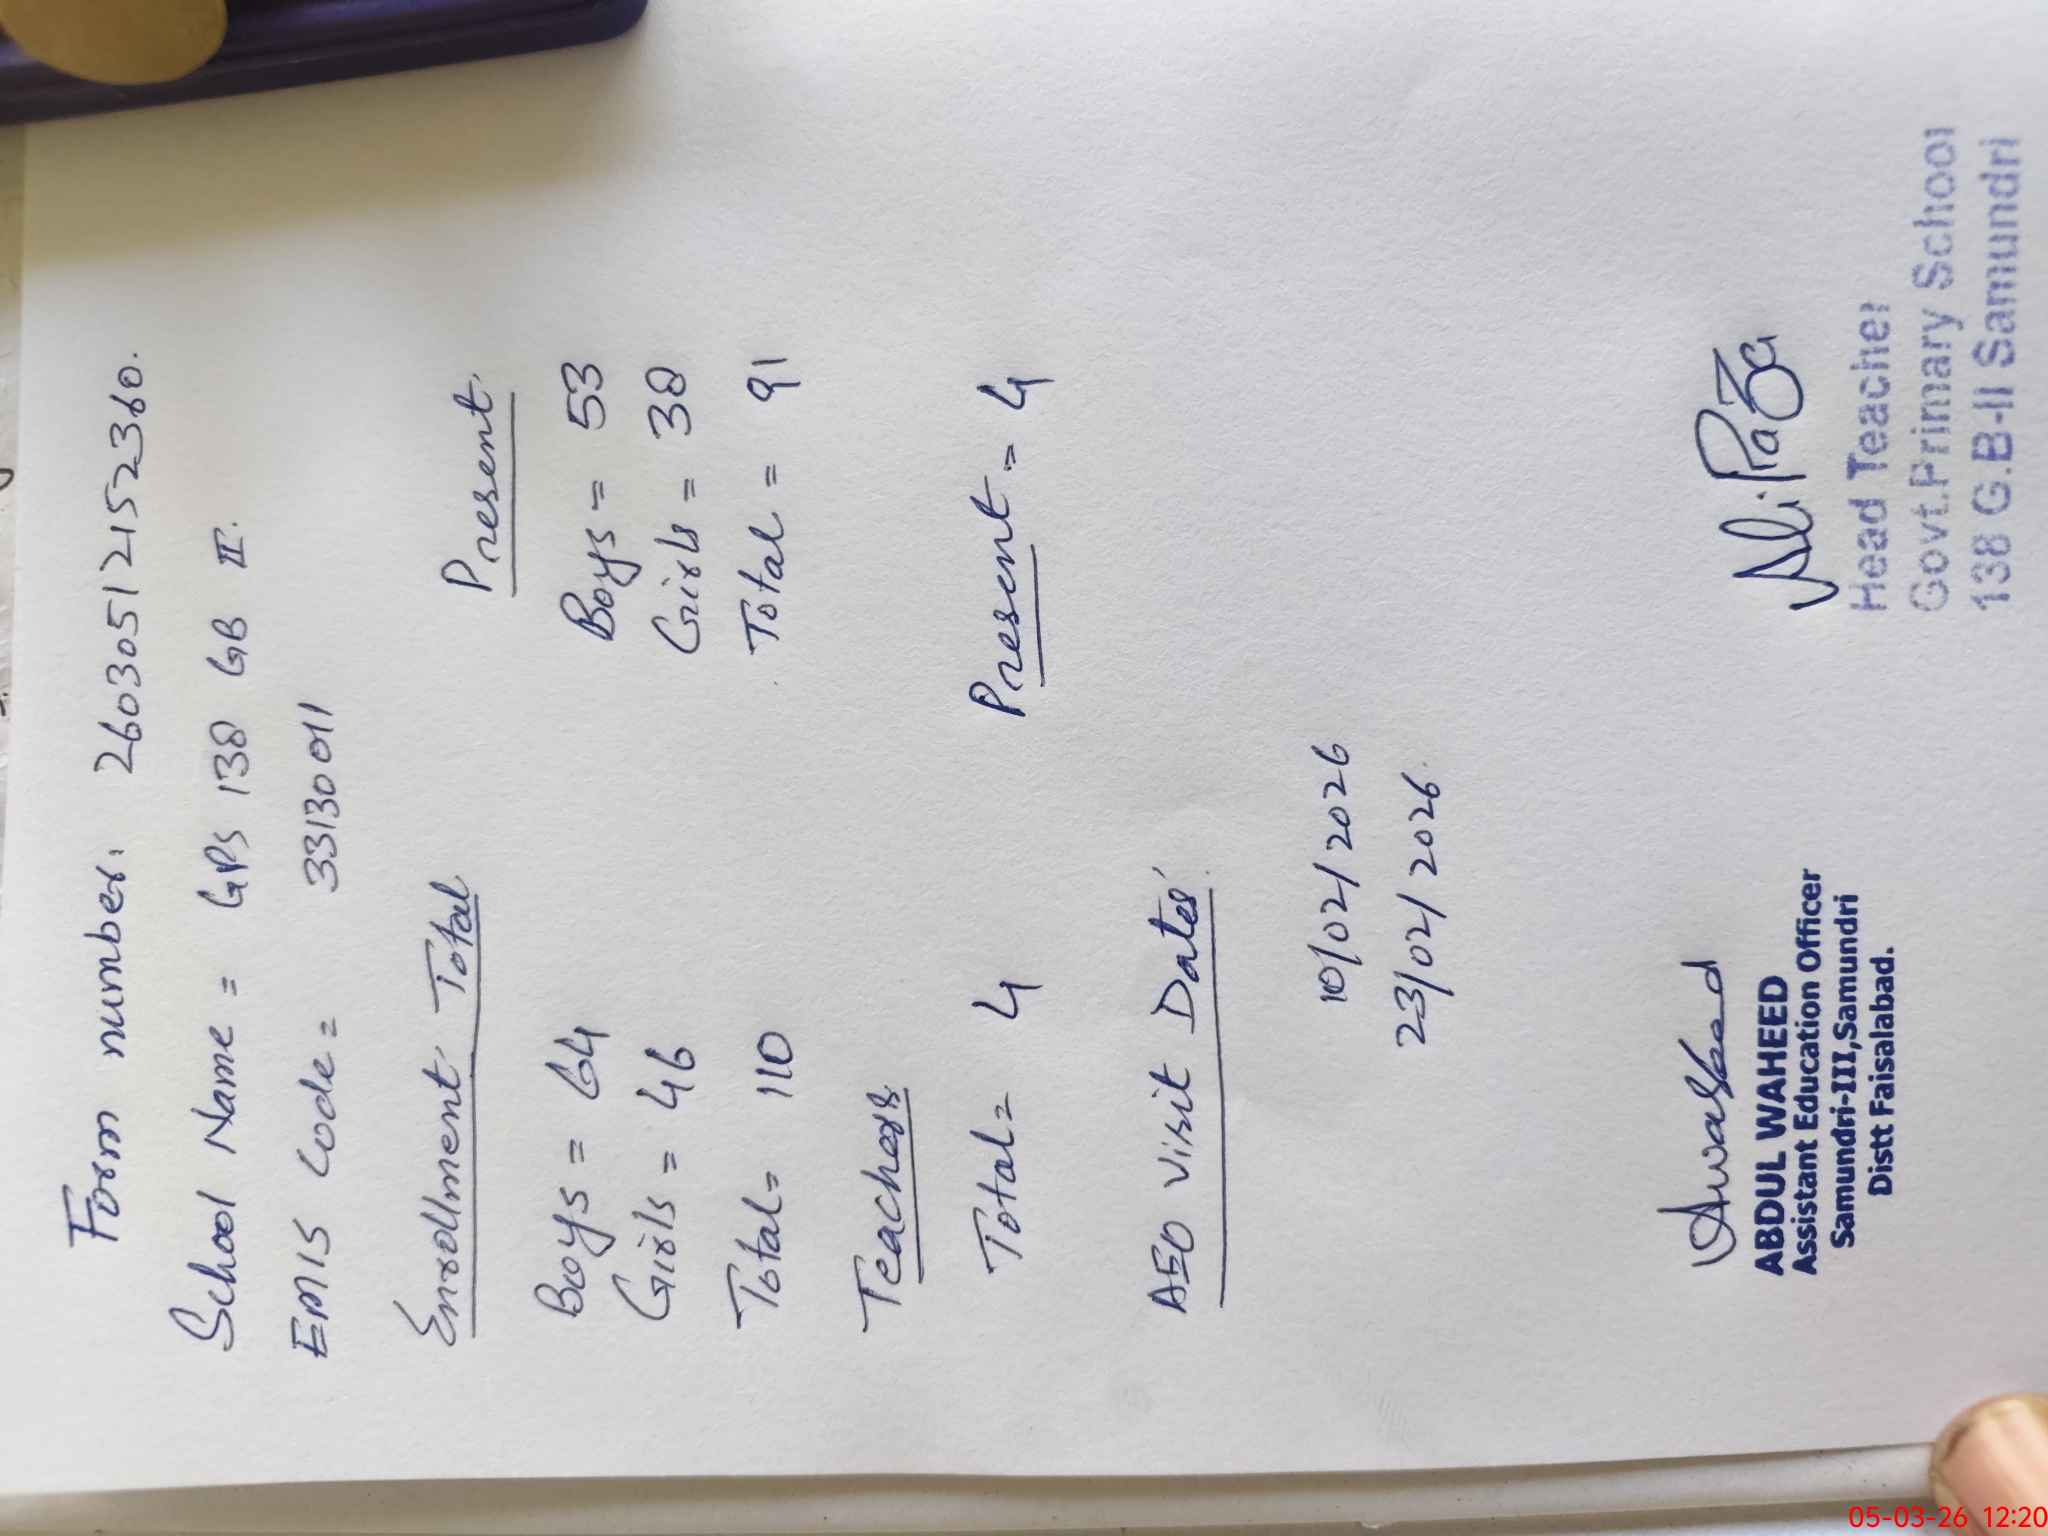 Form number: 26030512152360.
School Name = GPS 138 GB II.
EMIS Code = 33130011
Enrollment Total Present.
Boys = 64 Boys = 53
Girls = 46 Girls = 38
Total = 110 Total = 91
Teachers
Total = 4 Present = 4
AEO Visit Dates
10/02/2026
23/02/2026.
Ali Raza
ABDUL WAHEED
Assistant Education Officer
Samundri-III,Samundri
Distt Faisalabad.
Head Teacher
Govt.Primary School
138 G.B-II Samundri
05-03-26 12:20